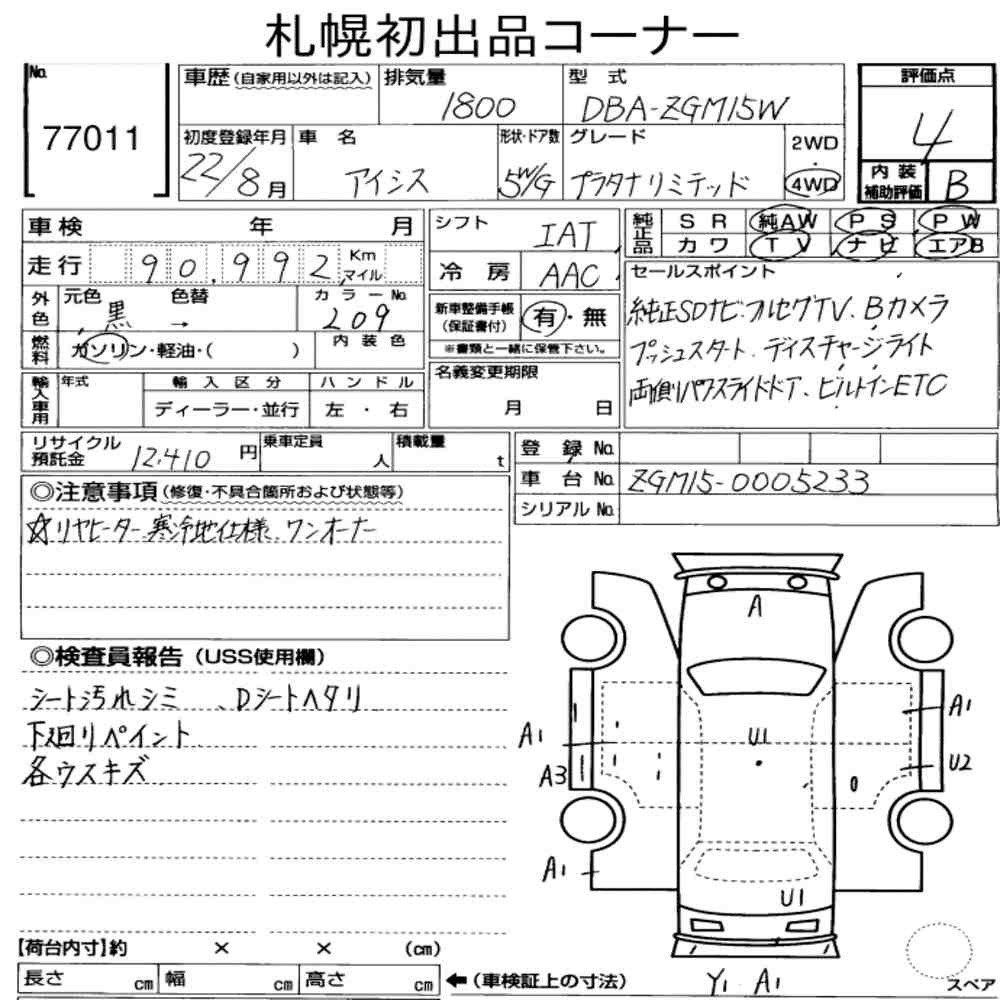 札幌初出品コーナー
No. 77011
車歴(自家用以外は記入)
排気量 1800
型式 DBA-ZGM15W
評価点 4
初度登録年月 22/8月
車名 アイシス
形状・ドア数 5W/G
グレード プラタナリミテッド
2WD・4WD
内装補助評価 B
車検 年 月
走行 90,992 Km マイル
外色 元色 黒 → 色替
カラーNo. 209
燃料 ガソリン・軽油・( )
内装色
輸入車用 年式
輸入区分 ディーラー・並行
ハンドル 左・右
シフト IAT
冷房 AAC
新車整備手帳(保証書付) 有・無
※書類と一緒に保管下さい。
名義変更期限 月 日
純正品 SR 純AW PS PW
カワ TV ナビ エアB
セールスポイント
純正SDナビ・フルセグTV、Bカメラ
プッシュスタート、ディスチャージライト
両側パワスライドドア、ビルトインETC
リサイクル預託金 12,410円
乗車定員 人
積載量 t
登録No.
車台No. ZGM15-0005233
シリアルNo.
◎注意事項(修復・不具合箇所および状態等)
☆リヤヒーター、寒冷地仕様、ワンオーナー
◎検査員報告(USS使用欄)
シート汚れシミ、Dシートヘタリ
下廻リペイント
各ウスキズ
A
A1
A1
U1
A3
U2
A1
U1
Y1 A1
【荷台内寸】約 × × (cm)
長さ cm 幅 cm 高さ cm
←(車検証上の寸法)
スペア